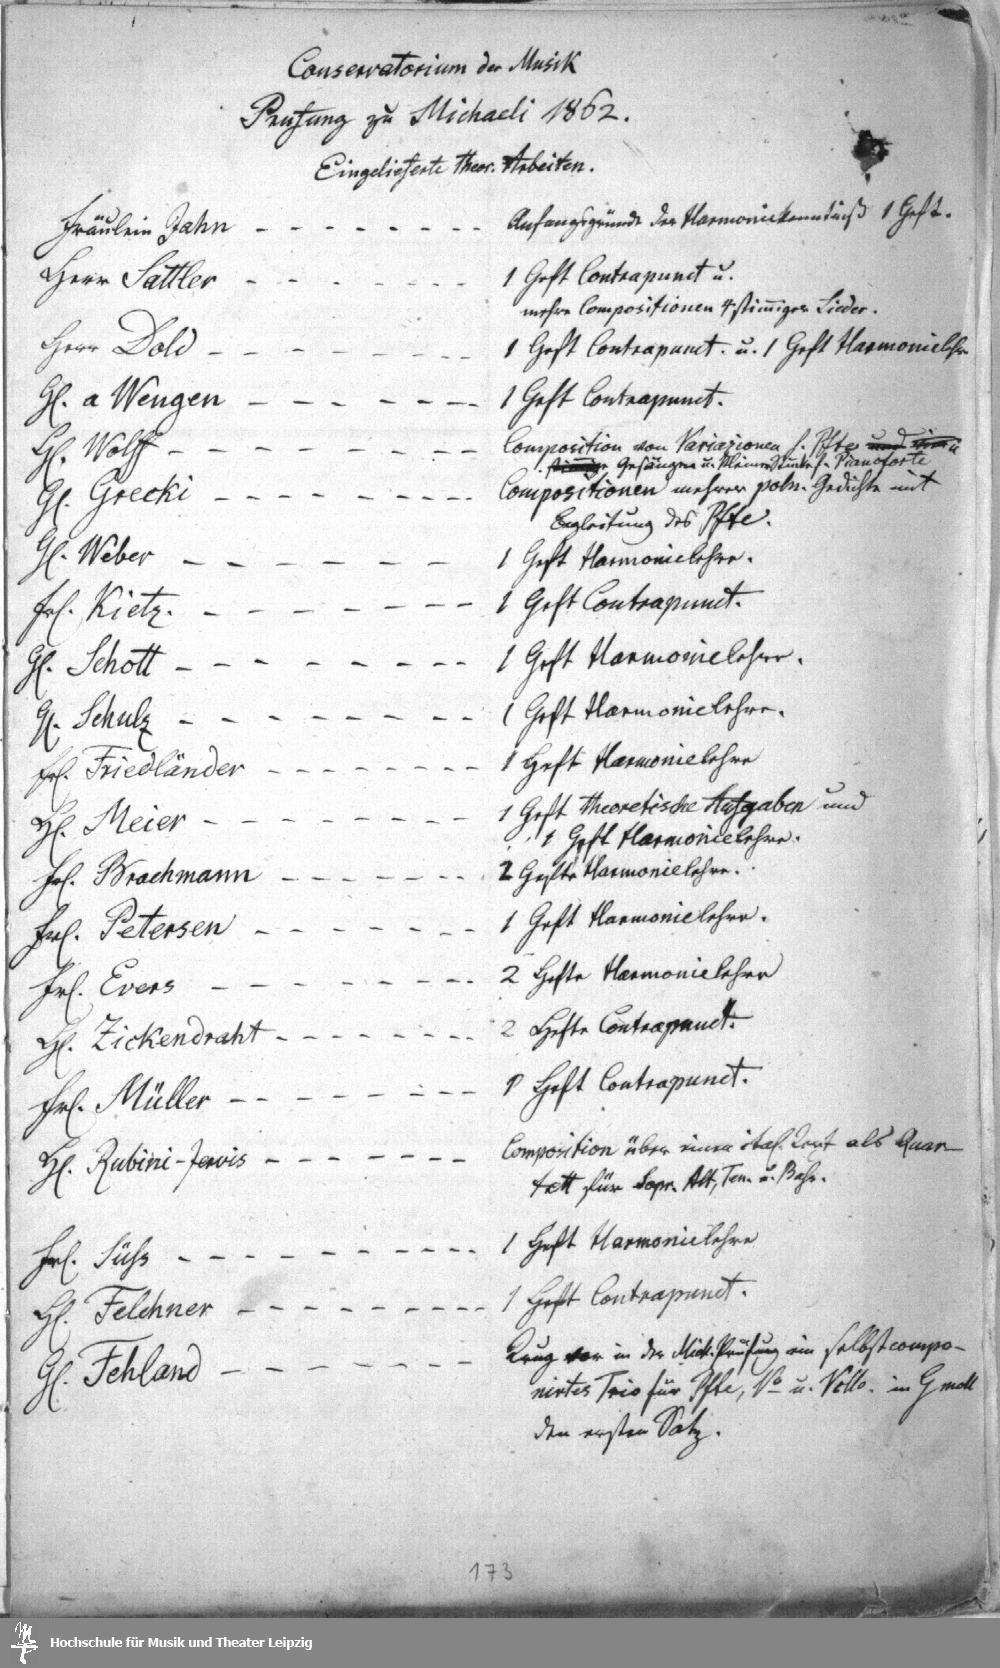 Conservatorium der Musik
Prüfung zu Michaeli 1862.
Eingelieferte theor. Arbeiten.
Fräulein Jahn - - - - - - - - Anfangsgründe der Harmoniekenntniß 1 Heft.
Herr Sattler - - - - - - - 1 Heft Contrapunct u.
mehre Compositionen 4 stimiger Lieder.
Herr Dold - - - - - - - - 1 Heft Contrapunct. u. 1 Heft Harmonielehre
H. a Wengen - - - - - - - 1 Heft Contrapunct.
H. Wolff - - - - - - - - - Composition von Variazionen f. Pfte und
Gesängen u. kleiner Stücke f. Pianoforte
H. Gorecki - - - - - - - - Compositionen mehrer poln. Gedichte mit
Begleitung des Pfte.
H. Weber - - - - - - - 1 Heft Harmonielehre.
Frl. Kietz. - - - - - - - - 1 Heft Contrapunct.
H. Schott - - - - - - - - - 1 Heft Harmonielehre.
H. Schulz - - - - - - - - - 1 Heft Harmonielehre.
Frl. Friedländer - - - - - - - - 1 Heft Harmonielehre
H. Meier - - - - - - - - 1 Heft theoretische Aufgaben und
1 Heft Harmonielehre.
Frl. Brachmann - - - - - - - 2 Hefte Harmonielehre.
Frl. Petersen - - - - - - - - 1 Heft Harmonielehre.
Frl. Evers - - - - - - - - 2 Hefte Harmonielehre
H. Zickendraht - - - - - - - - 2 Hefte Contrapunct.
Frl. Müller - - - - - - - - 1 Heft Contrapunct.
H. Rubini-Jervis - - - - - - - Composition über einen ital. Text als Quar-
tett für Sopr. Alt, Ten. u. Baß.
Frl. Süß - - - - - - - - - - 1 Heft Harmonielehre
H. Felchner - - - - - - - - 1 Heft Contrapunct.
H. Fehland - - - - - - - - Trug vor in der Mich. Prüfung ein selbstcompo-
nirtes Trio für Pfte, Vo u. Vcllo. in G moll
den ersten Satz.
173
Hochschule für Musik und Theater Leipzig